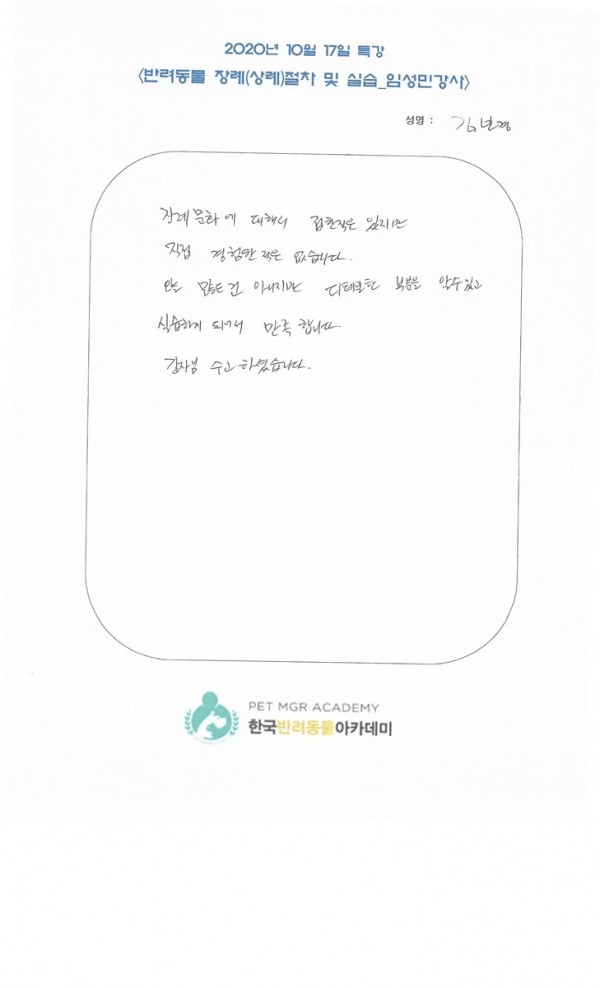 2020년 10월 17일 특강
<반려동물 장례(상례)절차 및 실습_임성민강사>
성명 :
장례문화에 대해서 접한적은 있지만
직접 경험한적은 없습니다.
건 아니지만 디테일한 부분을 알수있고
실습하게 되어서 만족합니다.
강사님 수고하셨습니다.
PET MGR ACADEMY
한국반려동물아카데미